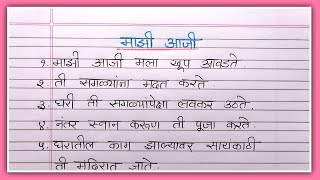 माझी आजी
१. माझी आजी मला खूप आवडते.
२. ती सगळ्यांना मदत करते.
३. घरी ती सगळ्यापेक्षा लवकर उठते.
४. नंतर स्नान करूण ती पूजा करते.
५. घरातील काम झाल्यावर सायकाळी
ती मंदिरात जाते.